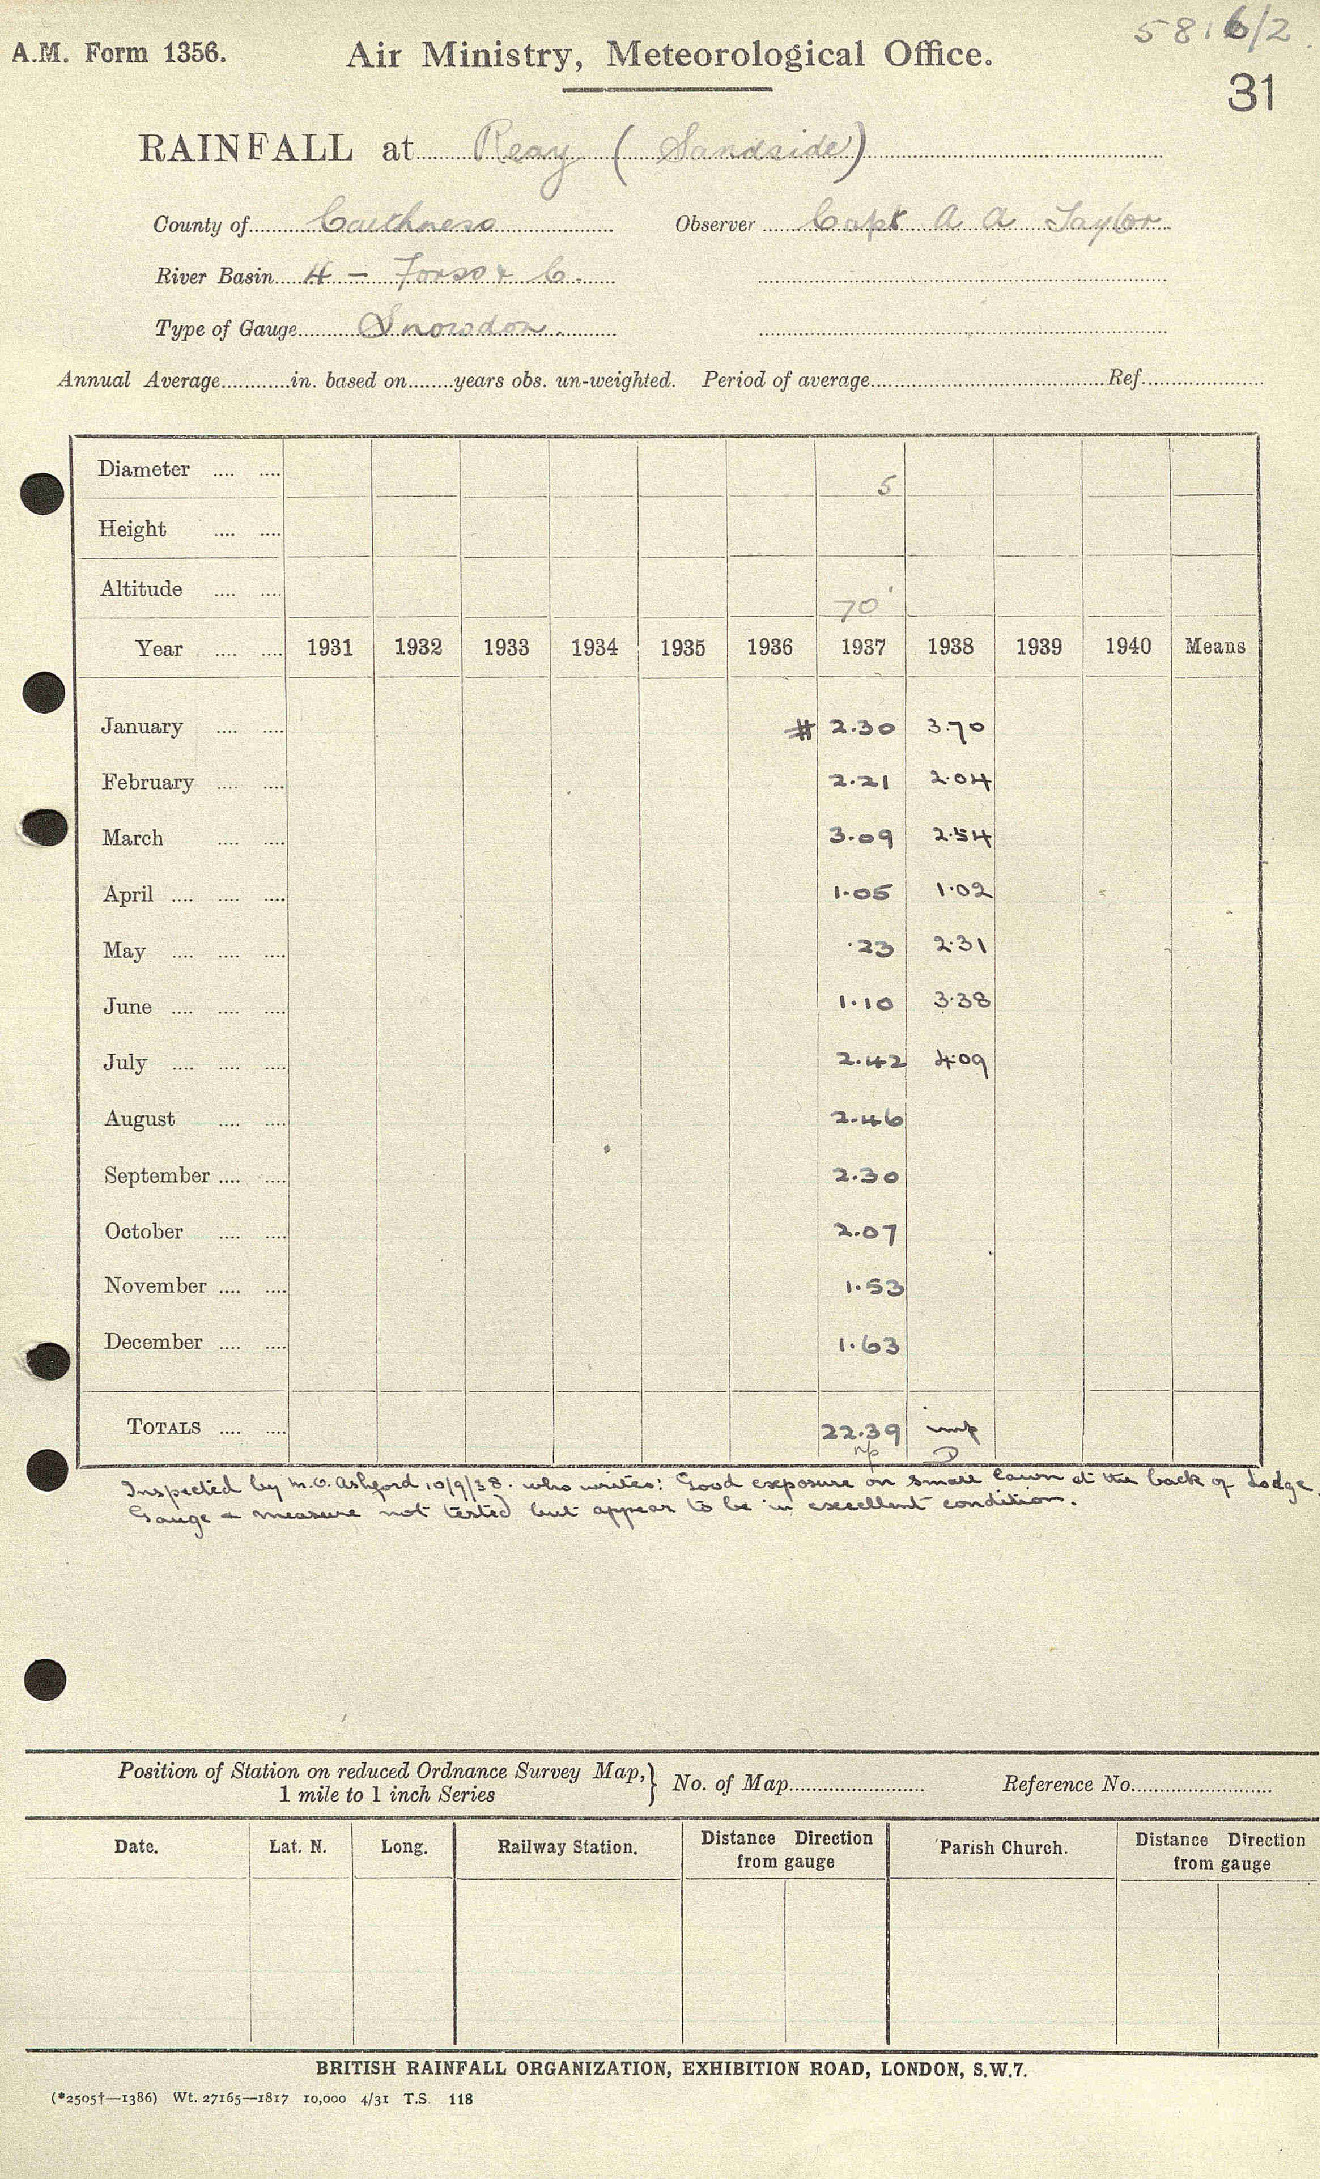 5816/2.
A.M. Form 1356. Air Ministry, Meteorological Office.
31
RAINFALL at Reay (Sandside)
County of Caithness Observer Capt A A Taylor
River Basin 4 - Forss & C.
Type of Gauge Snowdon
Annual Average............in. based on........years obs. un-weighted. Period of average.............................Ref.....................
Diameter .... .... 5
Height .... ....
Altitude .... .... 70'
Year .... .... 1931 1932 1933 1934 1935 1936 1937 1938 1939 1940 Means
January .... .... # 2.30 3.70
February .... .... 2.21 2.04
March .... .... 3.09 2.54
April .... .... .... 1.05 1.02
May .... .... .... .23 2.31
June .... .... .... 1.10 3.38
July .... .... .... 2.42 4.09
August .... .... 2.46
September .... .... 2.30
October .... .... 2.07
November .... .... 1.53
December .... .... 1.63
TOTALS .... .... 22.39 imp
Inspected by M.O. Ashford 10/9/38. who writes: Good exposure on small lawn at the back of Lodge.
Gauge & measure not tested but appear to be in excellent condition.
Position of Station on reduced Ordnance Survey Map, } No. of Map......................... Reference No..........................
1 mile to 1 inch Series
Date. Lat. N. Long. Railway Station. Distance Direction Parish Church. Distance Direction
from gauge from gauge
BRITISH RAINFALL ORGANIZATION, EXHIBITION ROAD, LONDON, S.W.7.
(*2505†—1386) Wt. 27165—1817 10,000 4/31 T.S. 118